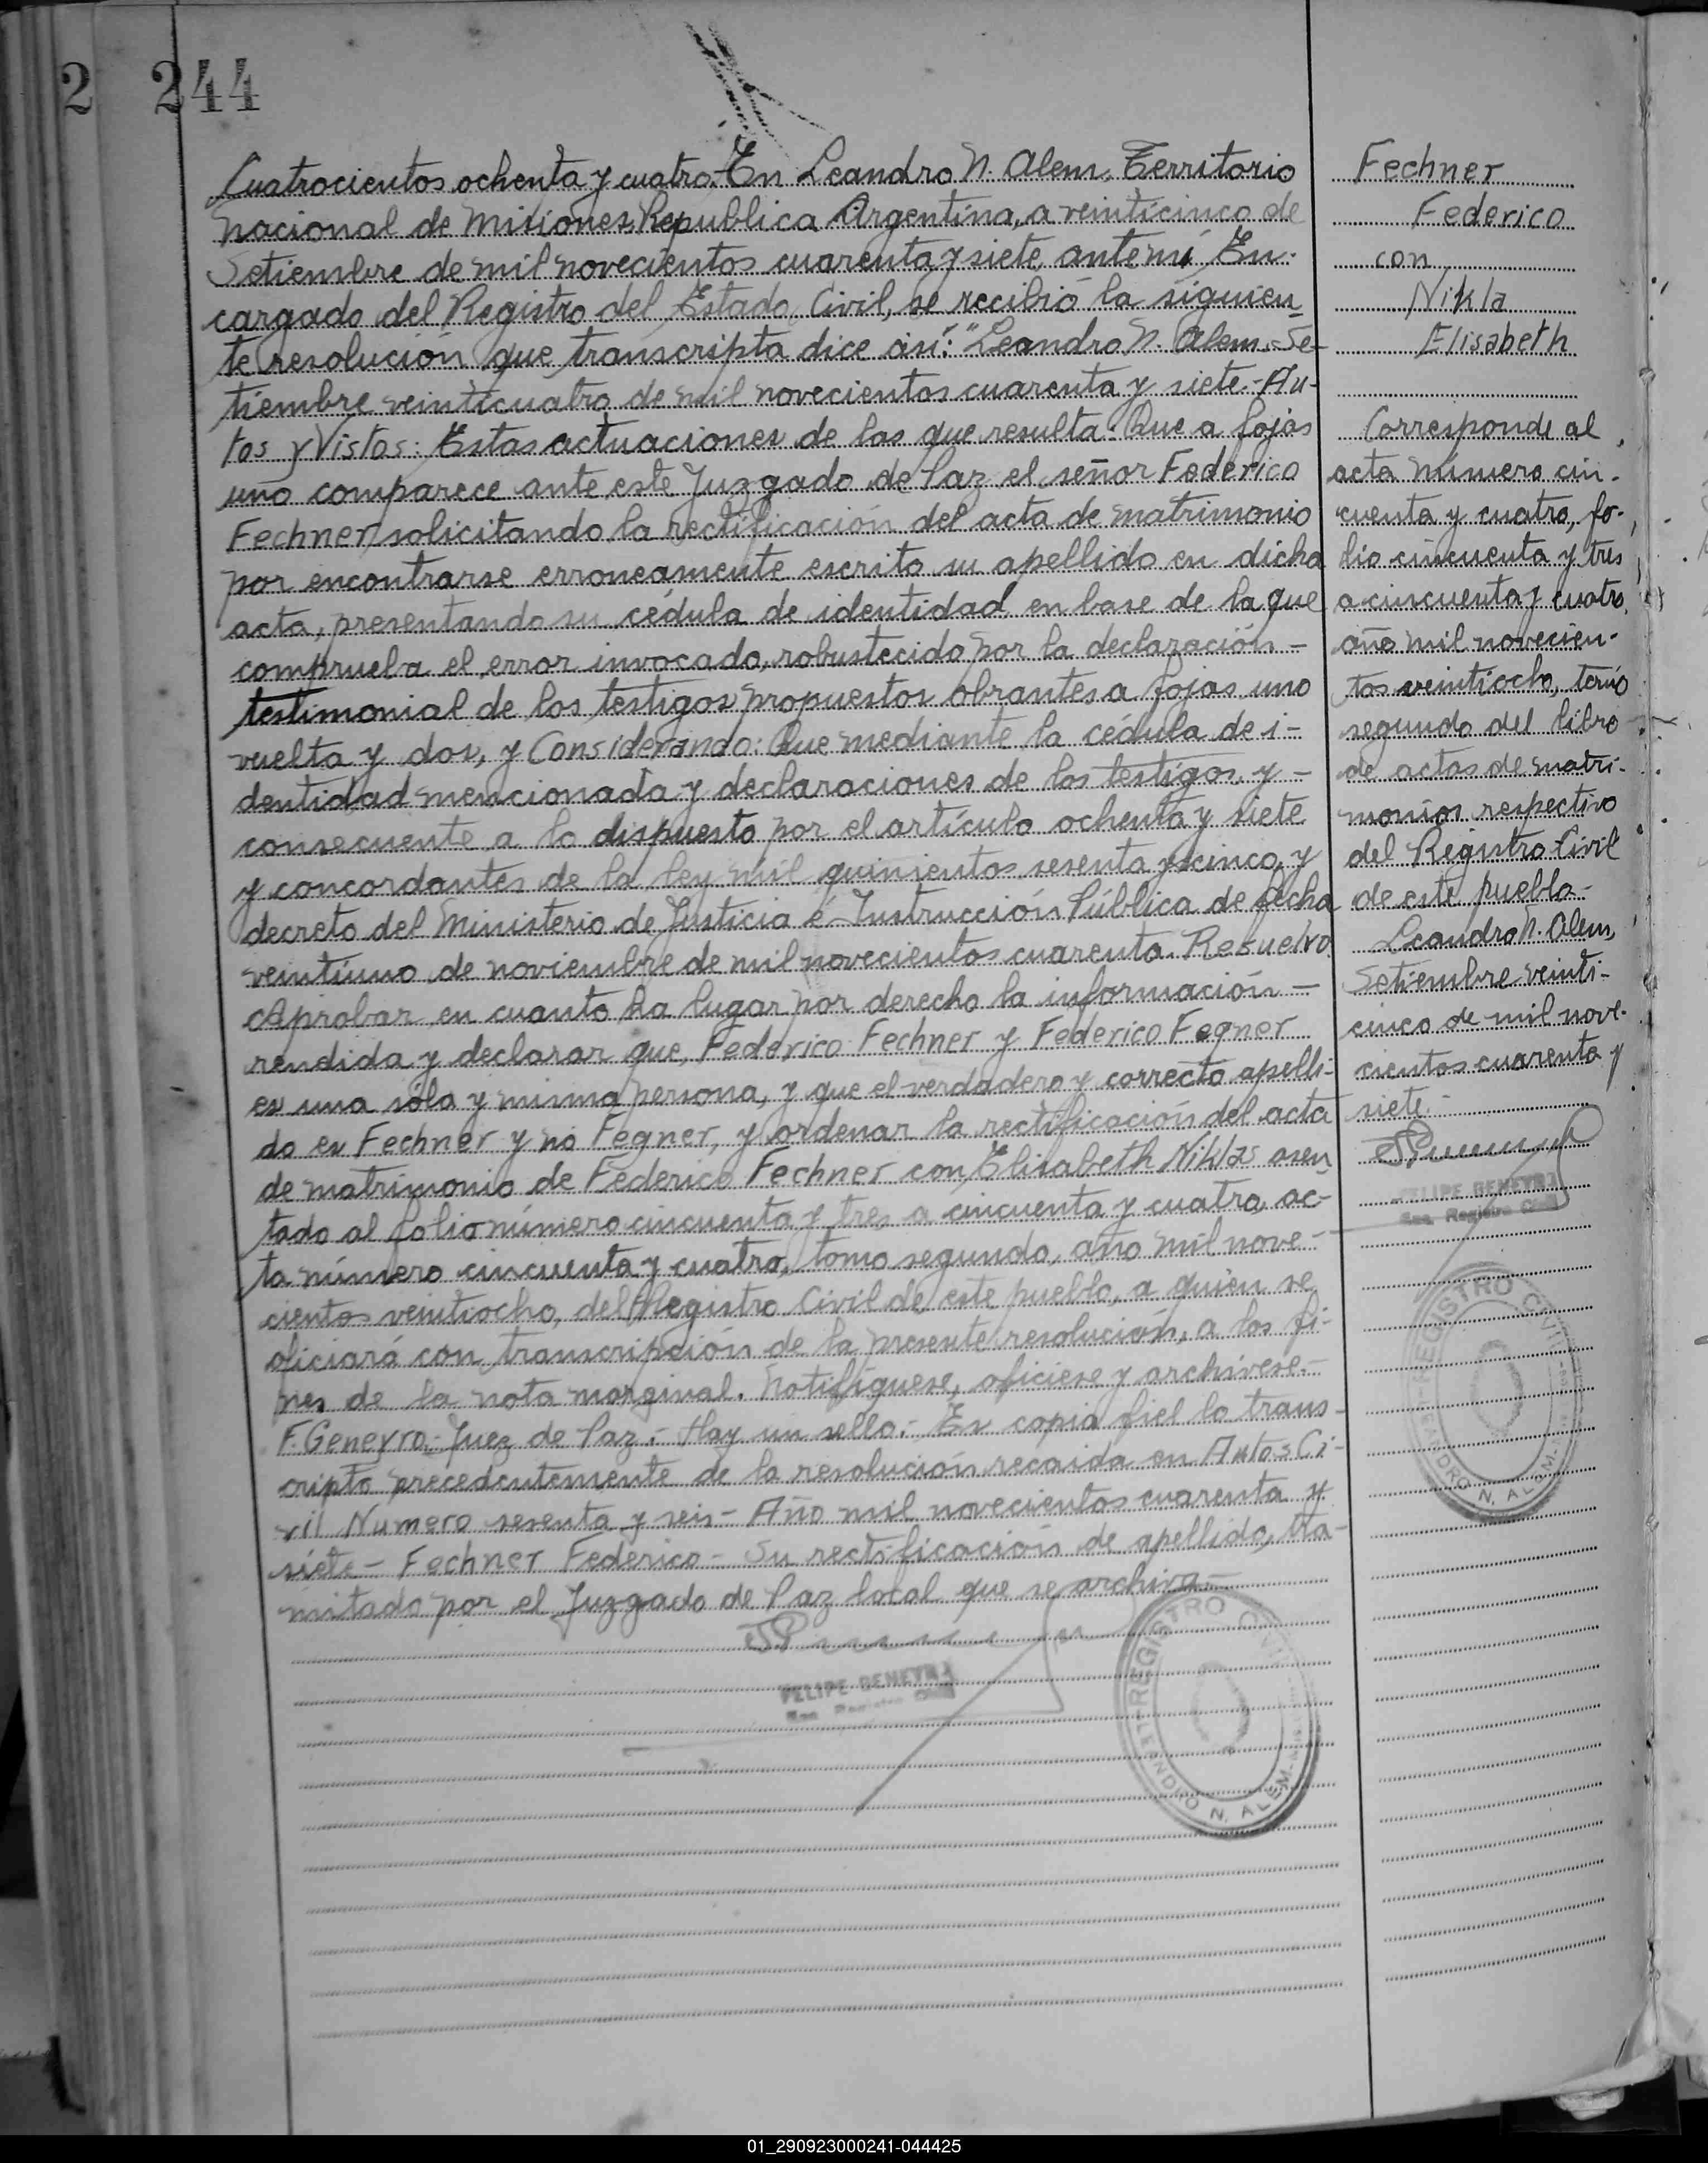 2 244
Cuatrocientos ochenta y cuatro. En Leandro N. Alem, Territorio
Nacional de Misiones, Republica Argentina, a veinticinco de
Setiembre de mil novecientos cuarenta y siete, ante mí En-
cargado del Registro del Estado Civil, se recibió la siguien
te resolución que transcripta dice así: "Leandro N. Alem, Se-
tiembre veinticuatro de mil novecientos cuarenta y siete.- Au-
tos y Vistos: Estas actuaciones de las que resulta: Que a fojas
uno comparece ante este Juzgado de Paz el señor Federico
Fechner solicitando la rectificación del acta de matrimonio
por encontrarse erroneamente escrito su apellido en dicha
acta, presentando su cédula de identidad en base de la que
comprueba el error invocado, robustecido por la declaración -
testimonial de los testigos propuestos obrantes a fojas uno
vuelta y dos, y Considerando: Que mediante la cédula de i-
dentidad mencionada y declaraciones de los testigos y -
consecuente a lo dispuesto por el artículo ochenta y siete
y concordantes de la ley mil quinientos sesenta y cinco y
decreto del Ministerio de Justicia é Instrucción Pública de fecha
veintiuno de noviembre de mil novecientos cuarenta. Resuelvo
Aprobar en cuanto ha lugar por derecho la información -
rendida y declarar que, Federico Fechner y Federico Fegner
es una sóla y misma persona, y que el verdadero y correcto apelli-
do es Fechner y no Fegner, y ordenar la rectificación del acta
de matrimonio de Federico Fechner con Elisabeth Niklas asen
tado al folio número cincuenta y tres a cincuenta y cuatro, ac-
ta número cincuenta y cuatro, tomo segundo, año mil nove-
cientos veintiocho, del Registro Civil de este pueblo, a quien se
oficiará con transcripción de la presente resolución, a los fi-
nes de la nota marginal. Notifíquese, oficiese y archívese.-
F. Geneyro.- Juez de Paz.- Hay un sello.- Es copia fiel lo trans-
cripto precedentemente de la resolución recaida en Autos Ci-
vil Numero sesenta y seis - Año mil novecientos cuarenta y
siete - Fechner Federico - Su rectificación de apellido, tra-
mitado por el Juzgado de Paz local que se archiva.-
FELIPE GENEYRO
Enc. Registro Civil
REGISTRO CIVIL
LEANDRO N. ALEM
Fechner
Federico
con
Nikla
Elisabeth
Corresponde al
acta número cin-
cuenta y cuatro, fo-
lio cincuenta y tres
a cincuenta y cuatro,
año mil novecien-
tos veintiocho, tomo
segundo del libro
de actas de matri-
monios respectivo
del Registro Civil
de este pueblo-
Leandro N. Alem,
Setiembre veinti-
cinco de mil nove-
cientos cuarenta y
siete.-
FELIPE GENEYRO
Enc. Registro Civil
REGISTRO CIVIL
LEANDRO N. ALEM
01_290923000241-044425